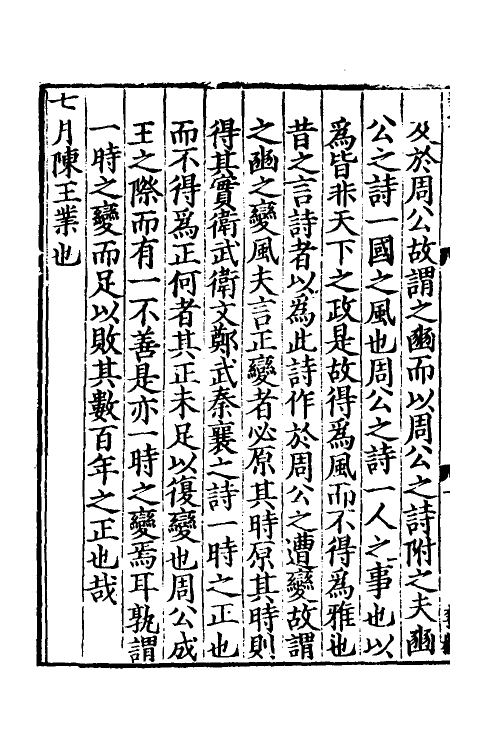 及於周公故謂之豳而以周公之詩附之夫豳
公之詩一國之風也周公之詩一人之事也以
為皆非天下之政是故得為風而不得為雅也
昔之言詩者以為此詩作於周公之遭變故謂
之豳之變風夫言正變者必原其時原其時則
得其實衛武衛文鄭武秦襄之詩一時之正也
而不得為正何者其正未足以復變也周公成
王之際而有一不善是亦一時之變焉耳孰謂
一時之變而足以敗其數百年之正也哉
七月陳王業也